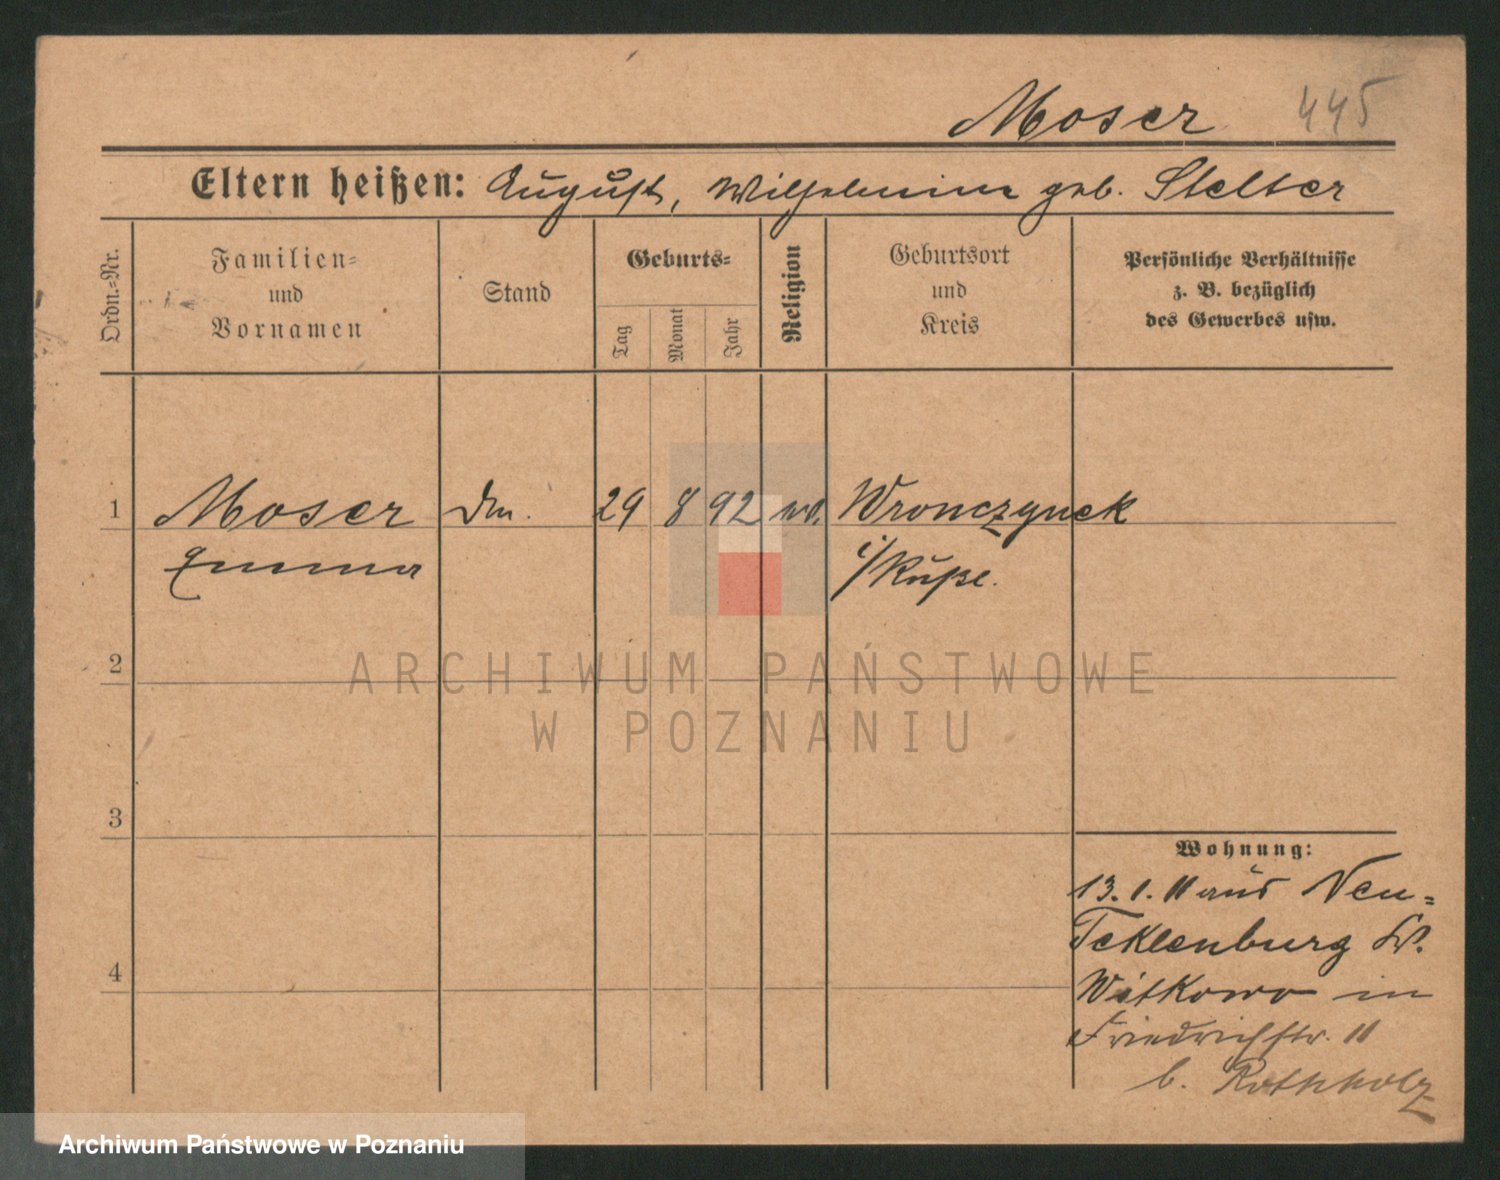 Moser 445
Eltern heißen: August, Wilhelmine geb. Stelter
Ordn.-Nr.
Familien- und Vornamen
Stand
Geburts-
Tag
Monat
Jahr
Religion
Geburtsort und Kreis
Persönliche Verhältnisse
z. B. bezüglich
des Gewerbes usw.
1 Moser 29 8 92 Wronczynek
Emma
2
ARCHIWUM PAŃSTWOWE
W POZNANIU
3
4
Wohnung:
13. 1. 11 aus Neu-
Tecklenburg Kr.
Witkowo in
Friedrichstr. 11
b. Rothholz
Archiwum Państwowe w Poznaniu